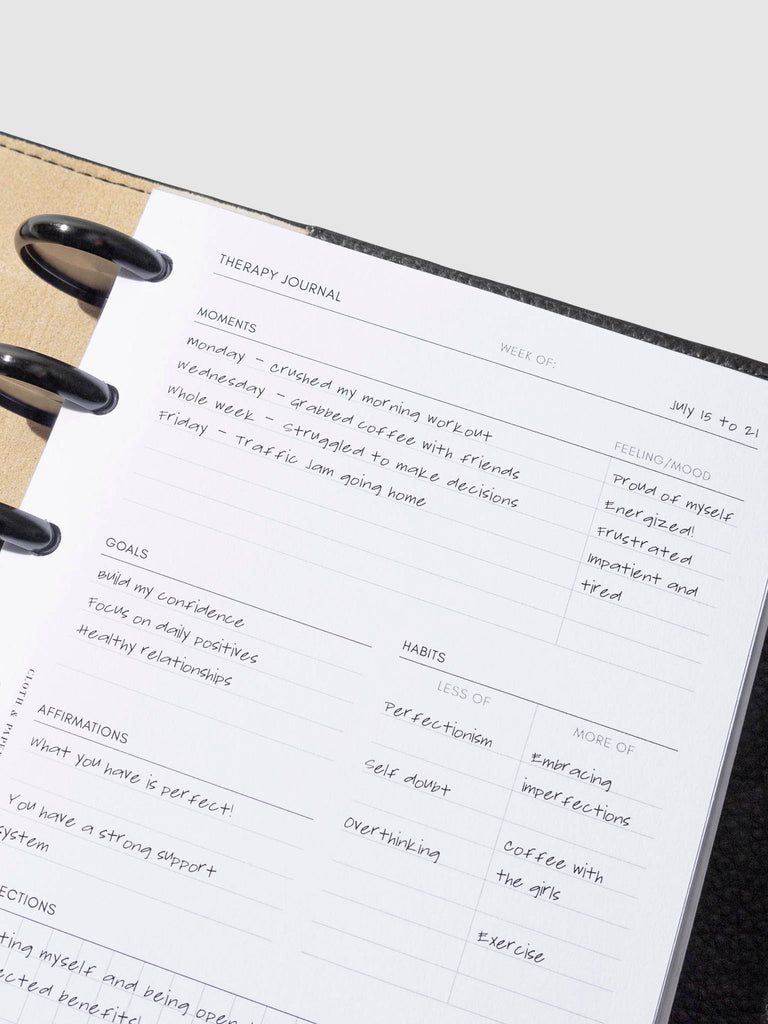 THERAPY JOURNAL
WEEK OF:
July 15 to 21
MOMENTS
FEELING/MOOD
Monday - crushed my morning workout
Proud of myself
Wednesday - Grabbed coffee with friends
Energized!
Whole week - struggled to make decisions
Frustrated
Friday - Traffic Jam going home
Impatient and
tired
GOALS
Build my confidence
Focus on daily positives
Healthy relationships
HABITS
LESS OF
MORE OF
Perfectionism
Embracing
imperfections
Self doubt
Coffee with
the girls
Overthinking
Exercise
AFFIRMATIONS
What you have is perfect!
You have a strong support
system
ECTIONS
myself and being open
benefits!
CLOTH & PAPE